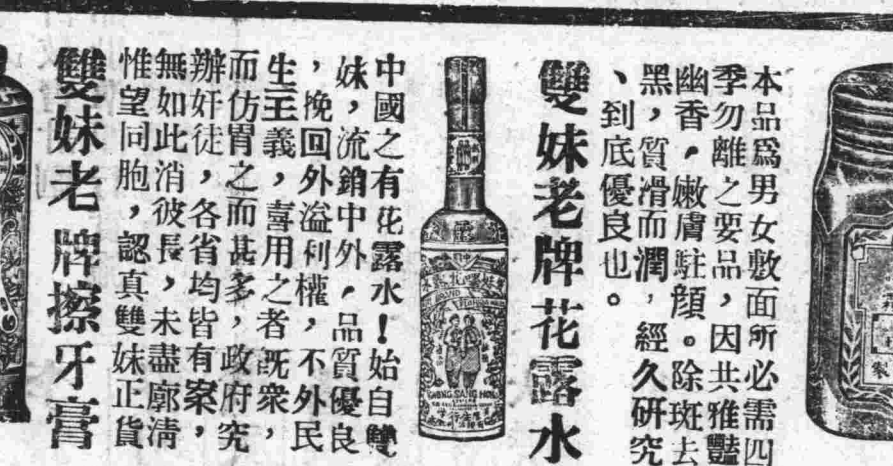 本品爲男女敷面所必需四
季勿離之要品，因共雅豔
幽香，嫩膚駐顏。除斑去
黑，質滑而潤，經久研究
、到底優良也。
雙妹老牌花露水
中國之有花露水！始自雙
妹，流銷中外，品質優良
，挽回外溢利權，不外民
生主義，喜用之者既衆，
而仿冒之而甚多，政府究
辦奸徒，各省均皆有案，
無如此消彼長，未盡廓清
惟望同胞，認真雙妹正貨
雙妹老牌擦牙膏